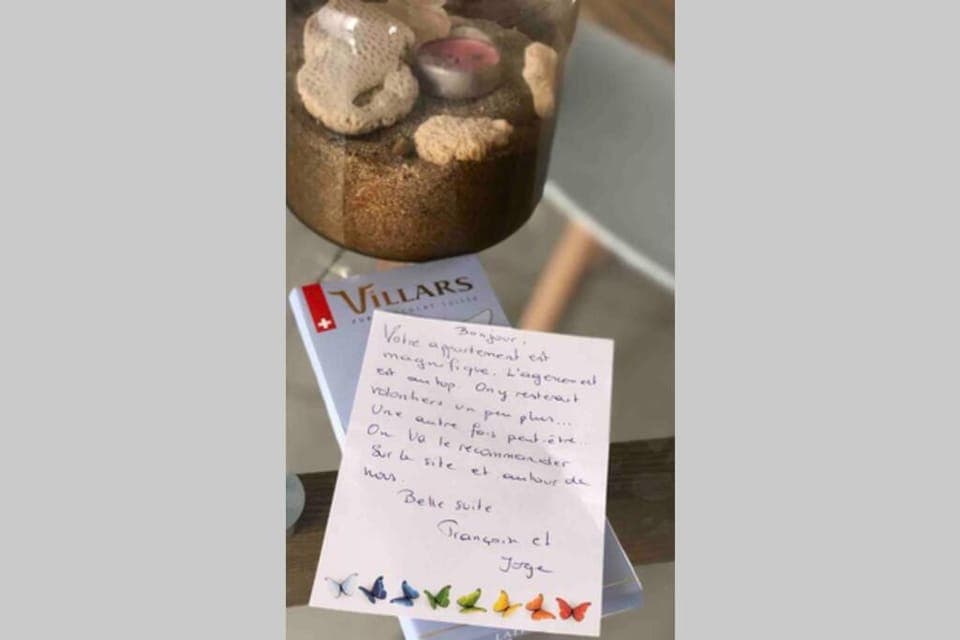 VILLARS
PUR CHOCOLAT SUISSE
Bonjour,
Votre appartement est
magnifique. L'agencement
est au top. On y resterait
volontiers un peu plus...
Une autre fois peut-être...
On va le recommander
sur le site et autour de
nous.
Belle suite
et
Jorge